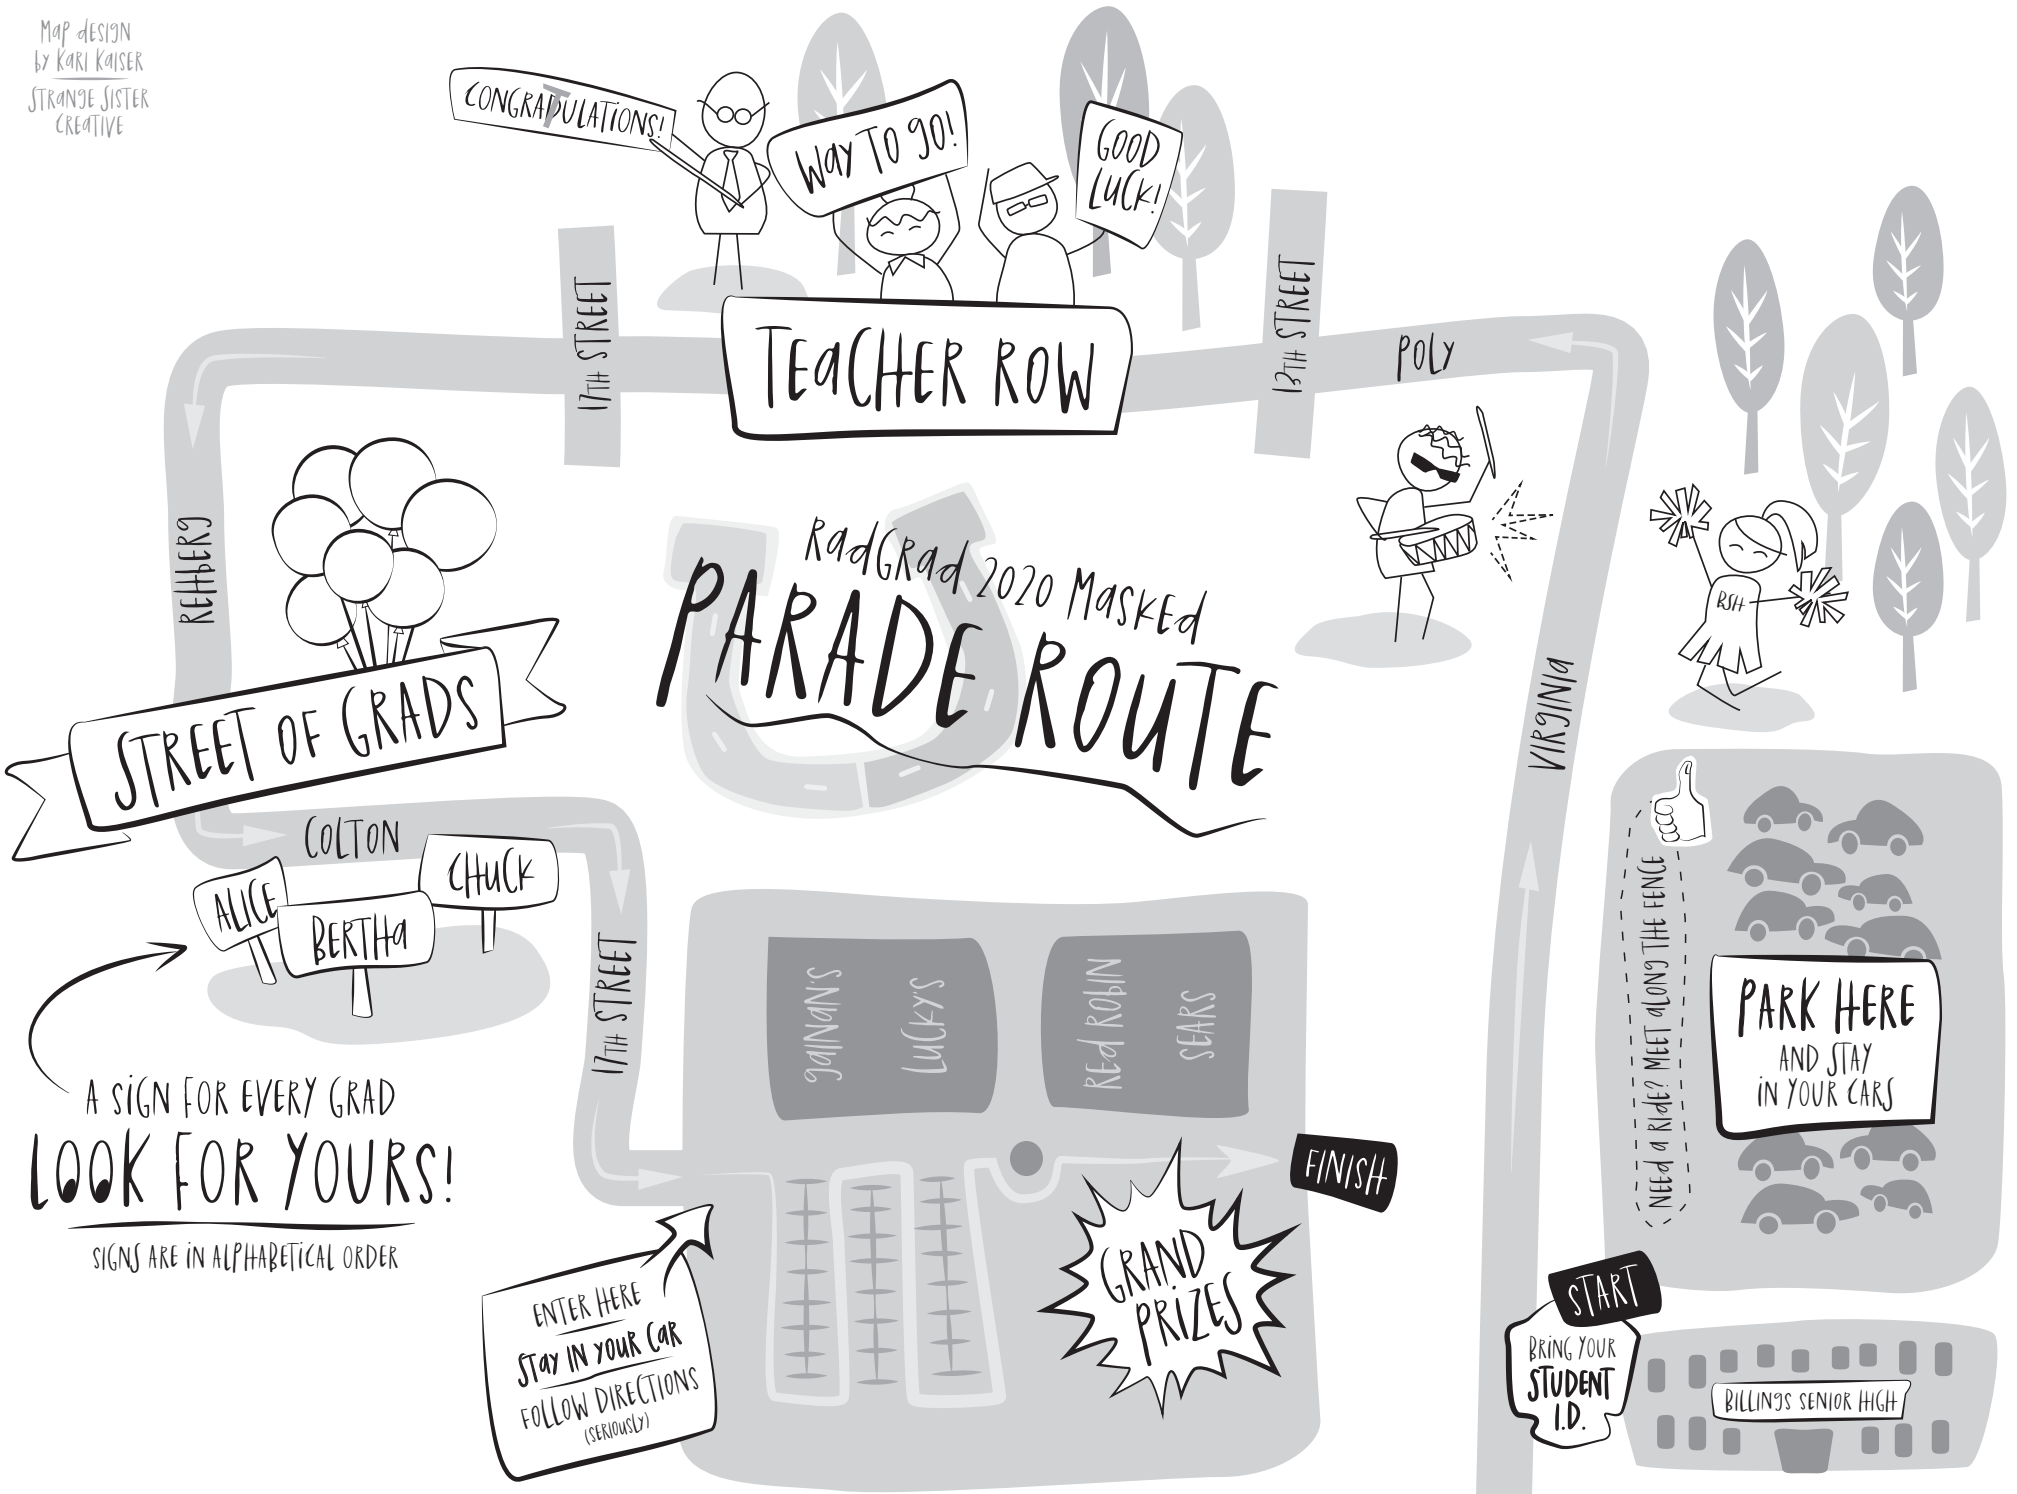 Map design
by Kari Kaiser
Strange Sister
Creative
CONGRATULATIONS!
WAY TO GO!
GOOD
LUCK!
TEACHER ROW
17TH STREET
13TH STREET
POLY
REHBERG
RadGrad 2020 Masked
PARADE ROUTE
VIRGINIA
BSH
STREET OF GRADS
COLTON
ALICE
BERTHA
CHUCK
17TH STREET
A SIGN FOR EVERY GRAD
LOOK FOR YOURS!
SIGNS ARE IN ALPHABETICAL ORDER
GAINAN'S
LUCKY'S
RED ROBIN
SEARS
FINISH
GRAND
PRIZES
ENTER HERE
STAY IN YOUR CAR
FOLLOW DIRECTIONS
(SERIOUSLY)
NEED A RIDE? MEET ALONG THE FENCE
PARK HERE
AND STAY
IN YOUR CARS
START
BRING YOUR
STUDENT
I.D.
BILLINGS SENIOR HIGH